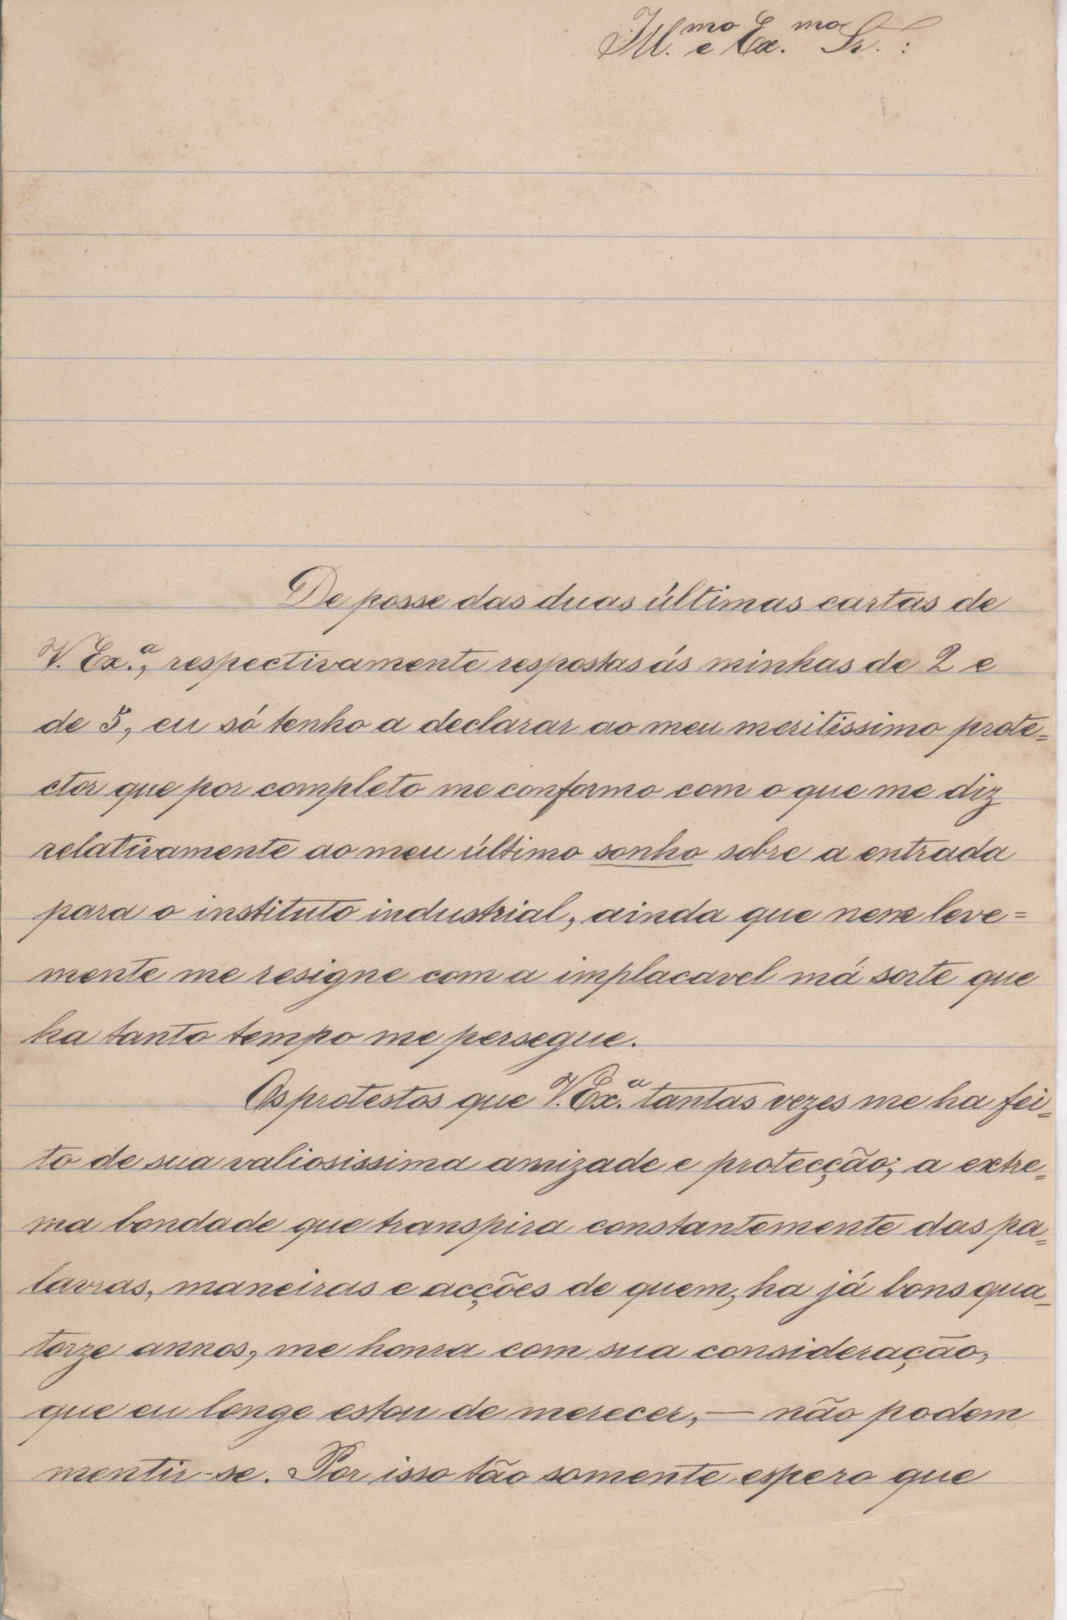 Ill.mo e Ex.mo Sr. :
De posse das duas últimas cartas de
V. Ex.a, respectivamente respostas ás minhas de 2 e
de 5, eu só tenho a declarar ao meu meritissimo prote=
ctor que por completo me conformo com o que me diz
relativamente ao meu último sonho sobre a entrada
para o instituto industrial, ainda que nem leve=
mente me resigne com a implacavel má sorte que
ha tanto tempo me persegue.
Os protestos que V. Ex.a tantas vezes me ha fei=
to de sua valiosissima amizade e protecção; a extre=
ma bondade que transpira constantemente das pa=
lavras, maneiras e acções de quem, ha já bons qua=
torze annos, me honra com sua consideração,
que eu longe estou de merecer, — não podem
mentir-se. Por isso tão somente espero que